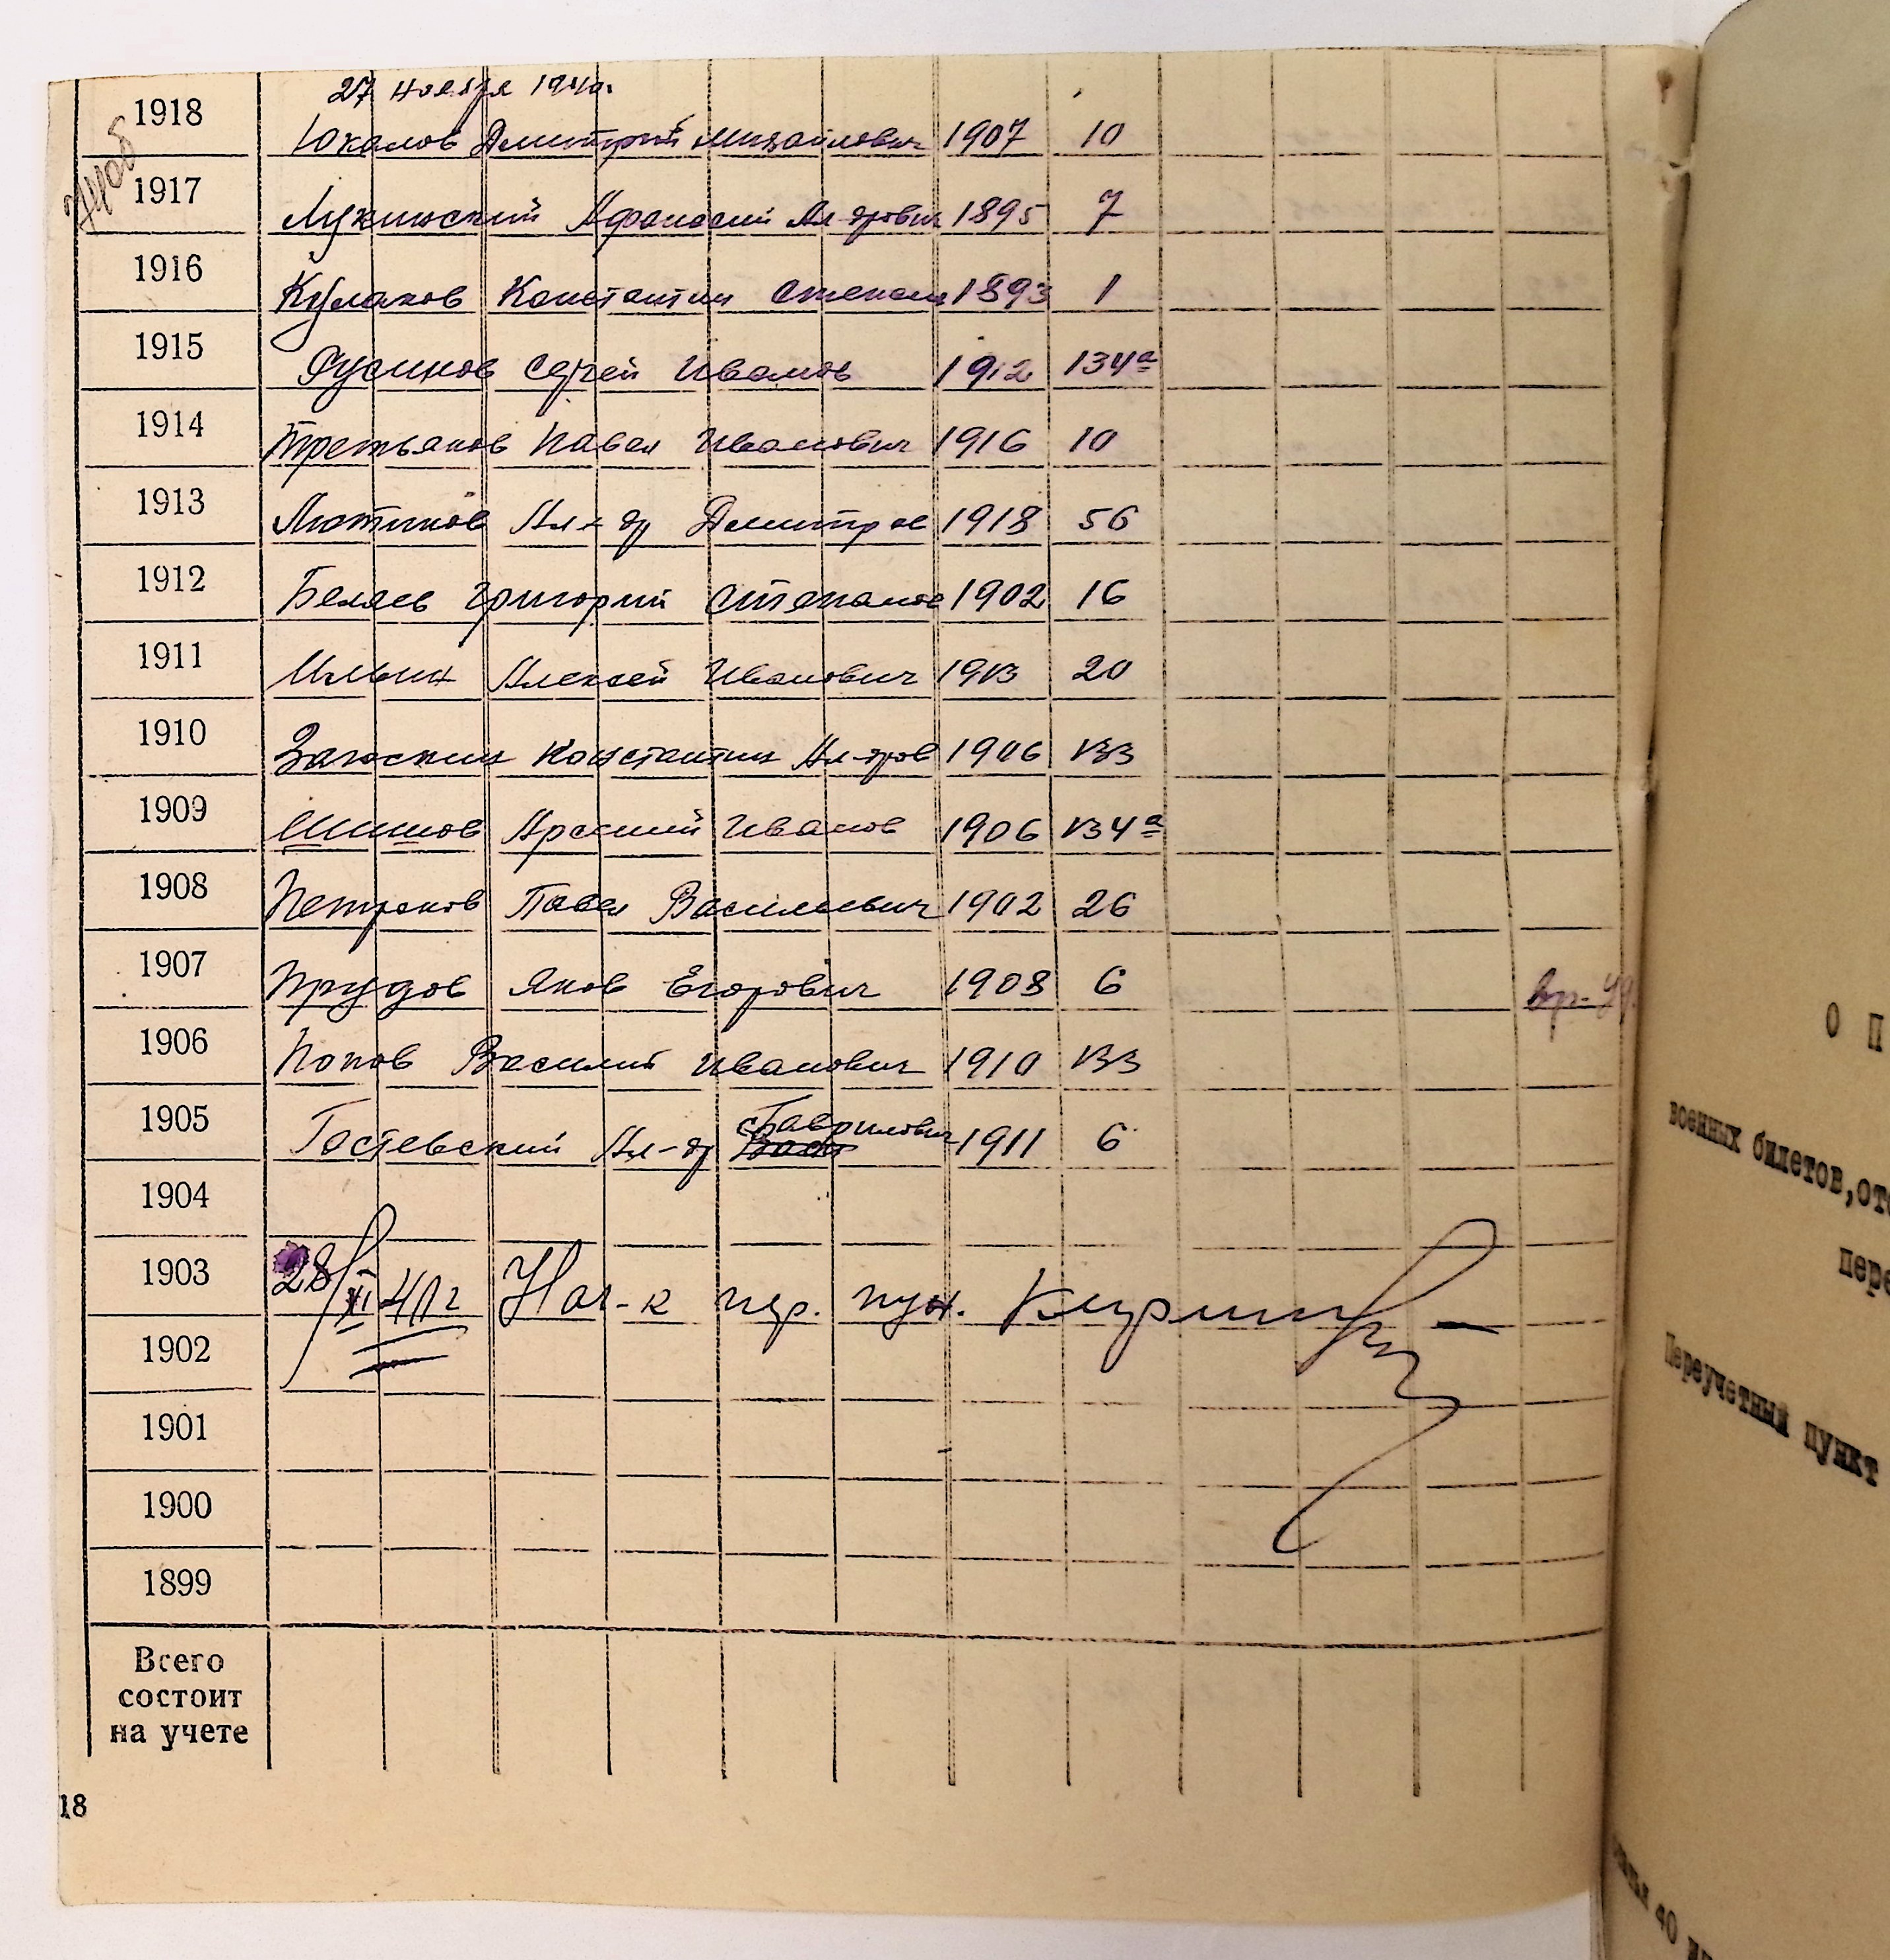 27 ноября 1940г.
1918 Юхалов Дмитрий Михайлович 1907 10
1917 Лукинский Афанасий Ал-дрович 1895 7
1916 Кулаков Константин Степан 1893 1
1915 Русинов Сергей Иванов 1912 134а
1914 Третьяков Павел Иванович 1916 10
1913 Лютиков Ал-др Дмитров 1918 56
1912 Беляев Григорий Степанов 1902 16
1911 Ильин Алексей Иванович 1913 20
1910 Загоскин Константин Ал-дров 1906 133
1909 Шишов Арсений Иванов 1906 134а
1908 Петраков Павел Васильевич 1902 26
1907 Прудов Яков Егорович 1908 6
1906 Попов Василий Иванович 1910 133
Гаврилович
1905 Гостевский Ал-др 1911 6
1904
1903 28/XI 40г Нач-к пер. пун.
1902
1901
1900
1899
Всего
состоит
на учете
18
О П
военных билетов,от
пере
Переучетный пункт
40